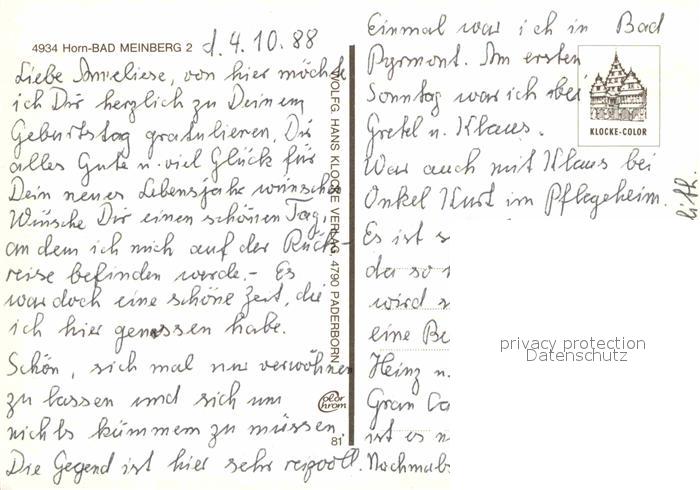 4934 Horn-BAD MEINBERG 2
d. 4.10.88
Liebe Anneliese, von hier möchte
ich Dir herzlich zu Deinem
Geburtstag gratulieren, Dir
alles Gute u. viel Glück für
Dein neues Lebensjahr wünschen
Wünsche Dir einen schönen Tag,
an dem ich mich auf der Rück-
reise befinden werde.- Es
war doch eine schöne Zeit, die
ich hier genossen habe.
Schön, sich mal nur verwöhnen
zu lassen und sich um
nichts kümmern zu müssen.
Die Gegend ist hier sehr reizvoll.
WOLFG. HANS KLOCKE VERLAG, 4790 PADERBORN
color
chrom
81
Einmal war ich in Bad
Pyrmont. Am ersten
Sonntag war ich bei
Gretel u. Klaus.
War auch mit Klaus bei
Onkel Kurt im Pflegeheim.
Es ist s
da so
wird
eine Be
Heinz u.
Gran Ca
ist es n
Nochmals
KLOCKE-COLOR
privacy protection
Datenschutz